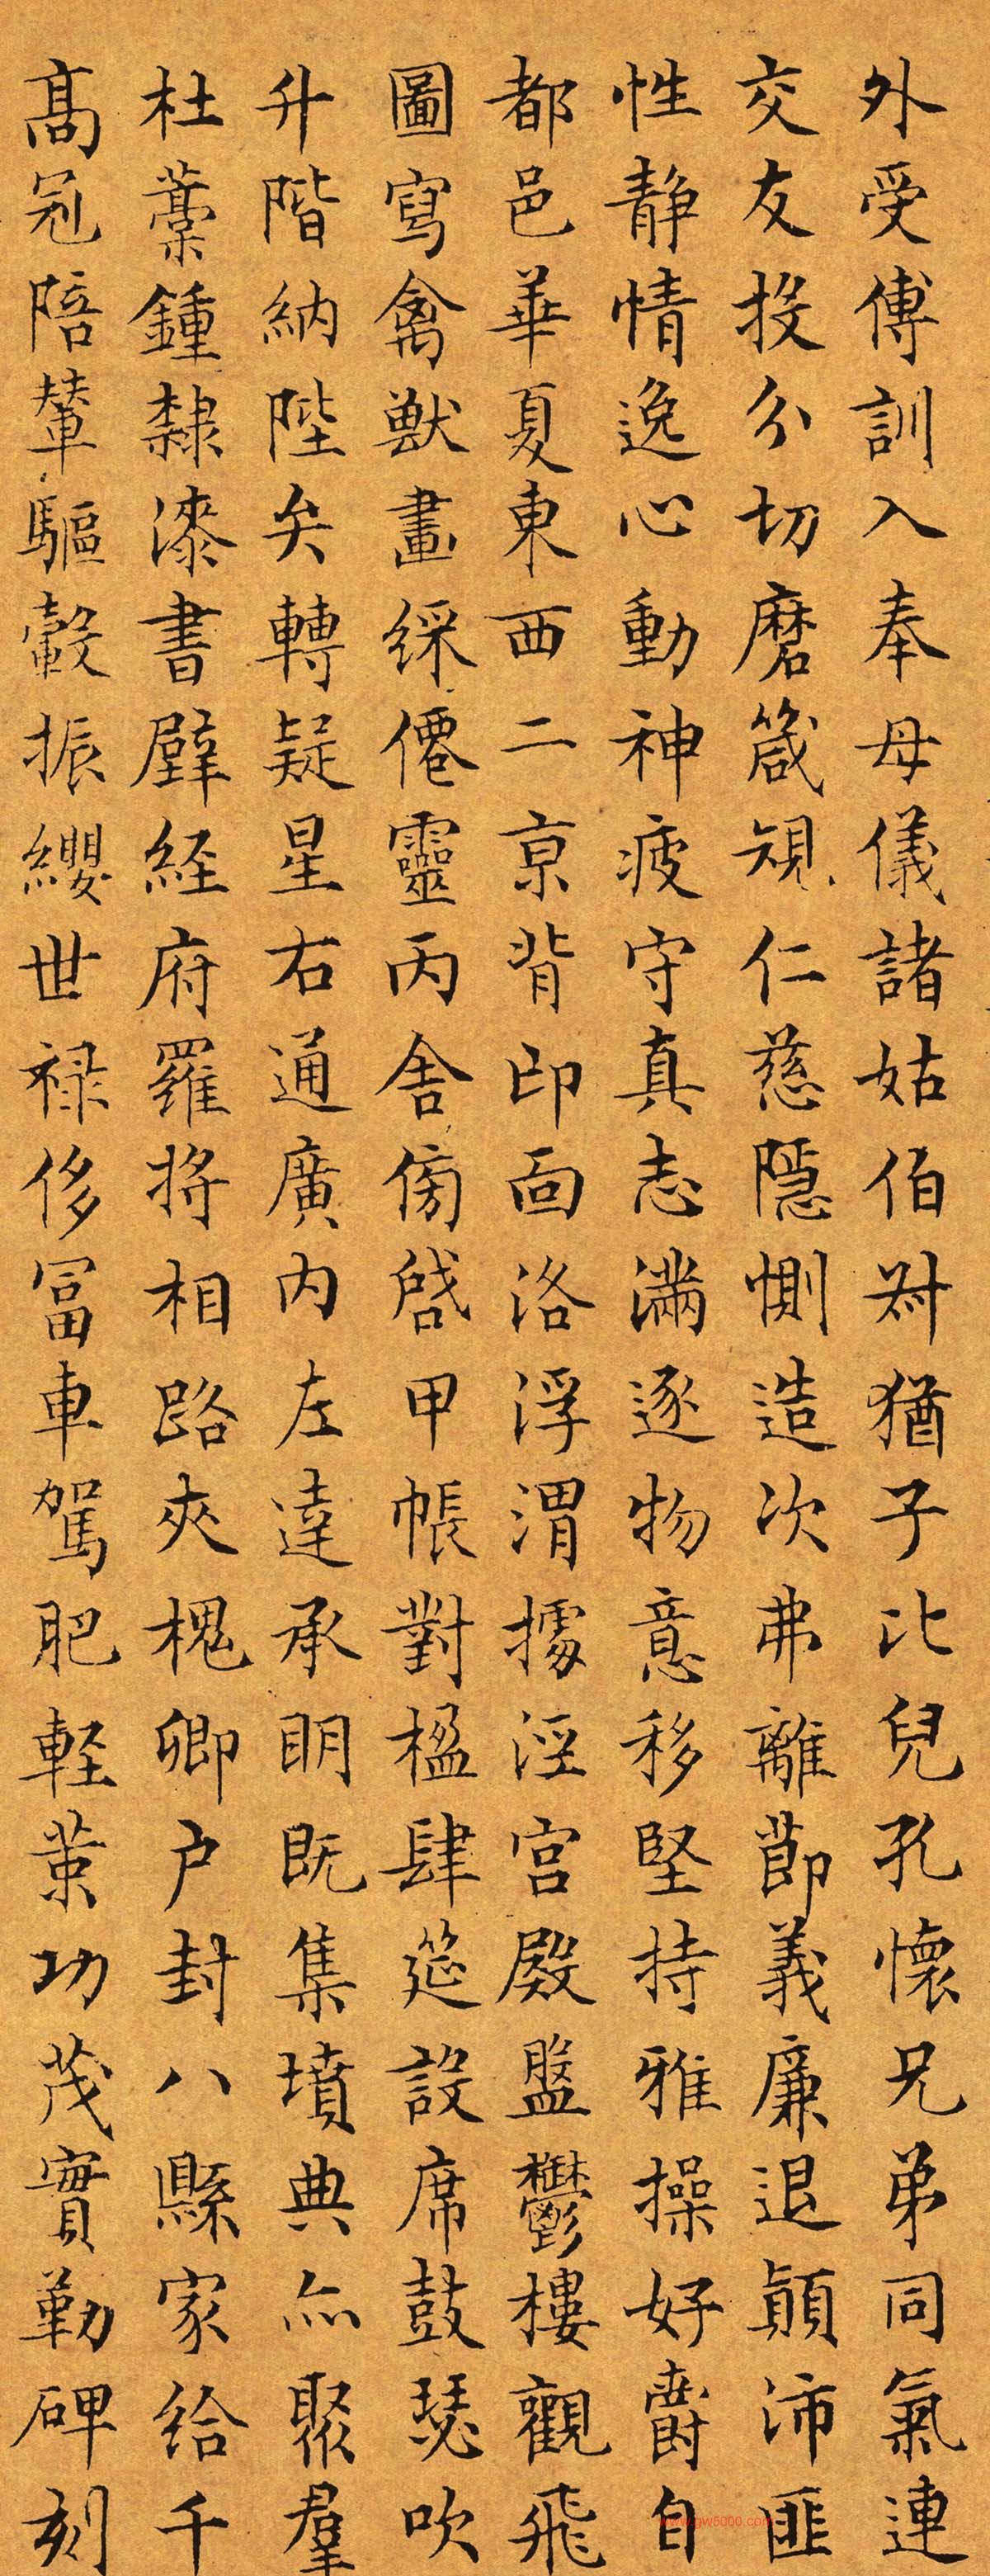 外受傅訓入奉母儀諸姑伯叔猶子比兒孔懷兄弟同氣連
交友投分切磨箴規仁慈隱惻造次弗離節義廉退顛沛匪
性静情逸心動神疲守真志滿逐物意移堅持雅操好爵自
都邑華夏東西二京背邙面洛浮渭據涇宮殿盤鬱樓觀飛
圖寫禽獸畫綵僊靈丙舍傍啓甲帳對楹肆筵設席鼓瑟吹
升階納陛弁轉疑星右通廣内左達承明既集墳典亦聚羣
杜藁鍾隸漆書壁経府羅將相路夾槐卿户封八縣家給千
高冠陪輦驅轂振纓世禄侈富車駕肥軽策功茂實勒碑刻
www.gw5000.com